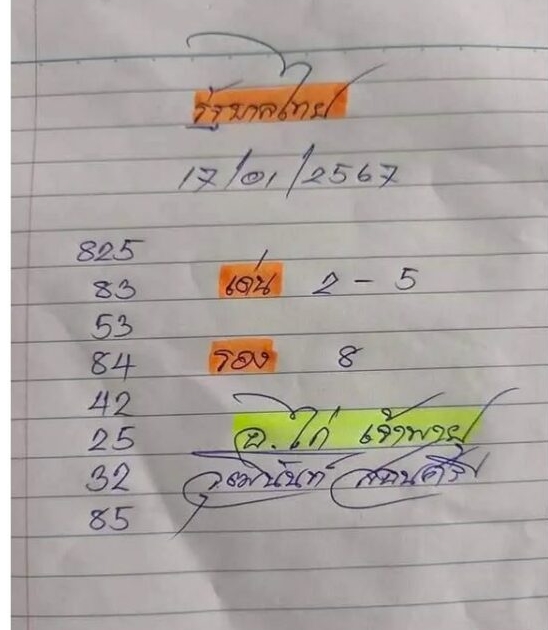 รัฐบาลไทย
17/01/2567
825
83 เด่น 2 - 5
53
84 รอง 8
42
25 อ. ไก่ เจ้าพายุ
32
85